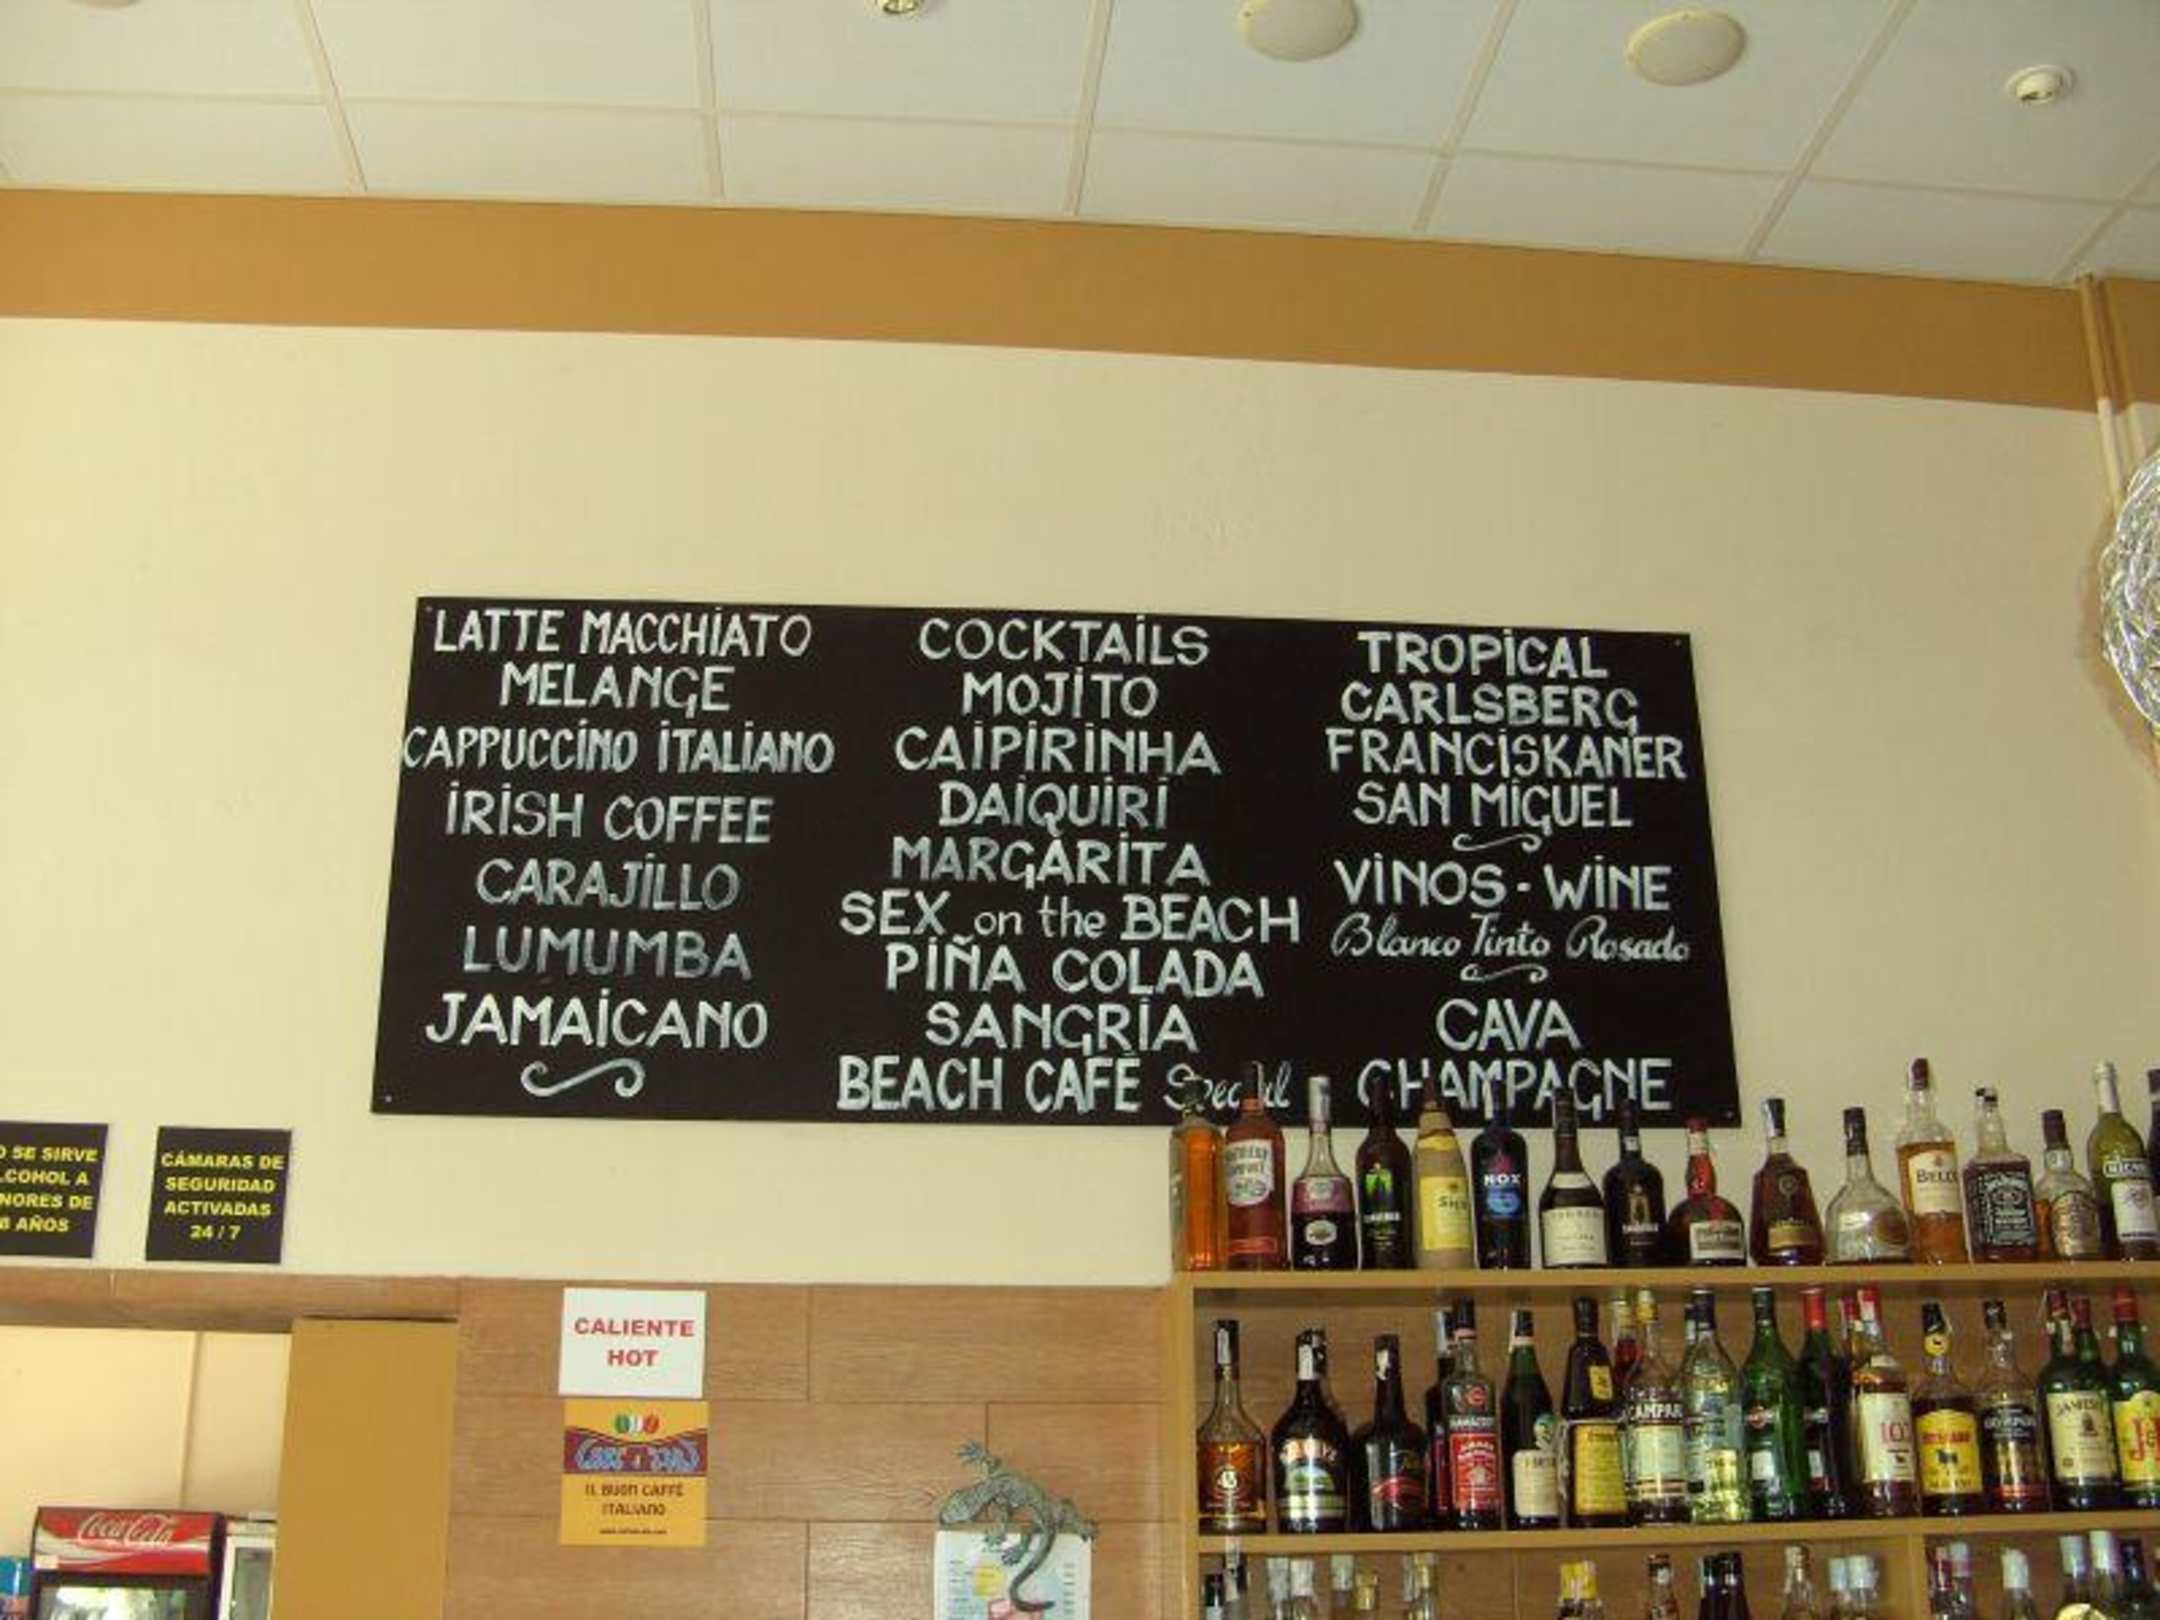 LATTE MACCHIATO
MELANGE
CAPPUCCINO ITALIANO
IRISH COFFEE
CARAJILLO
LUMUMBA
JAMAICANO
COCKTAILS
MOJITO
CAIPIRINHA
DAIQUIRI
MARGARITA
SEX on the BEACH
PIÑA COLADA
SANGRIA
BEACH CAFÉ Special
TROPICAL
CARLSBERG
FRANCISKANER
SAN MIGUEL
VINOS - WINE
Blanco Tinto Rosado
CAVA
CHAMPAGNE
O SE SIRVE
LCOHOL A
NORES DE
8 AÑOS
CÁMARAS DE
SEGURIDAD
ACTIVADAS
24 / 7
CALIENTE
HOT
IL BUON CAFFÈ
ITALIANO
Coca-Cola
NOX
BELL'S
CAMPARI
JAMESON
J&B